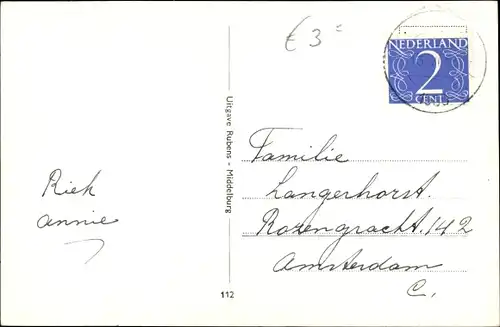 € 3=
NEDERLAND
2
CENT
Uitgave Rubens - Middelburg
Riek
annie
Familie
Langerhorst.
Rozengracht.142
Amsterdam
C.
112